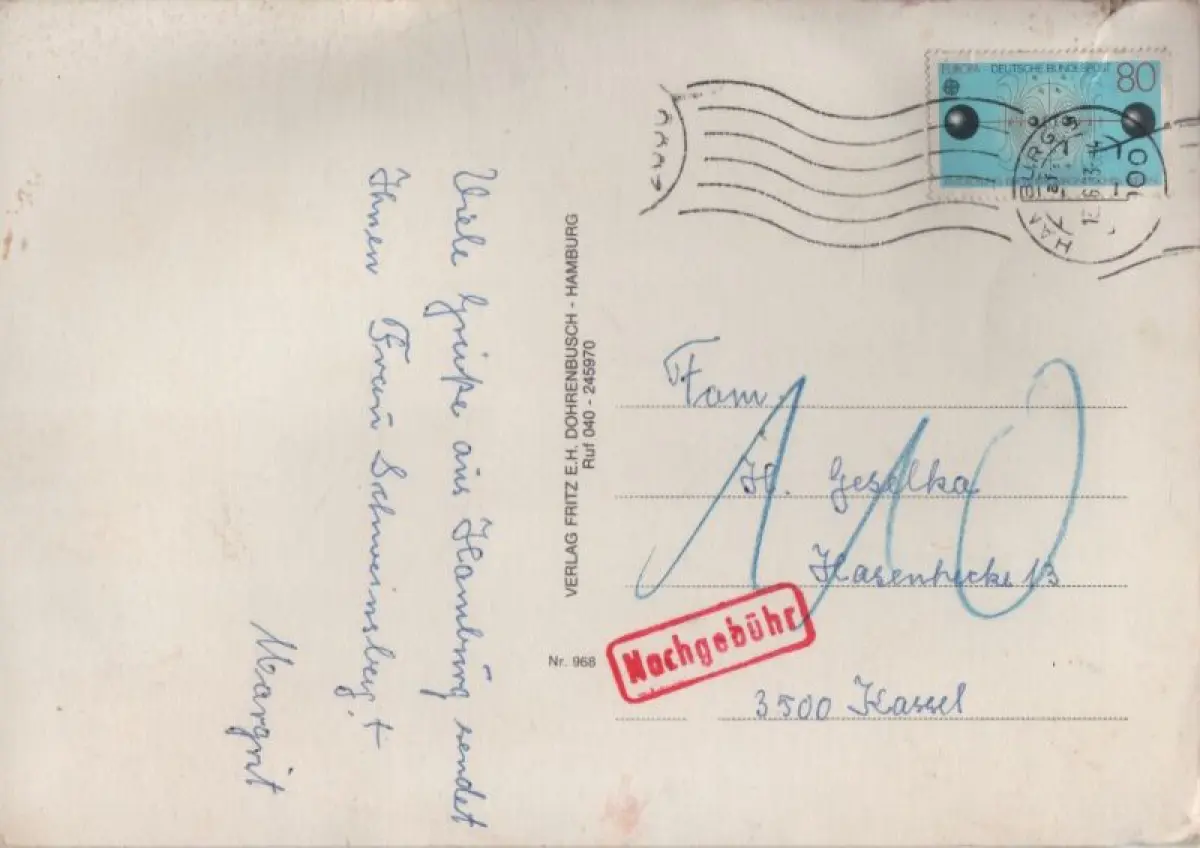 Viele Grüße aus Hamburg sendet
Ihnen Frau Schweinsberg +
Margrit
VERLAG FRITZ E.H. DOHRENBUSCH - HAMBURG
Ruf 040 - 245970
Nr. 968
EUROPA DEUTSCHE BUNDESPOST 80
HAMBURG
Fam.
H. Geselka
Hasenhecke 13
110
Nachgebühr
3500 Kassel